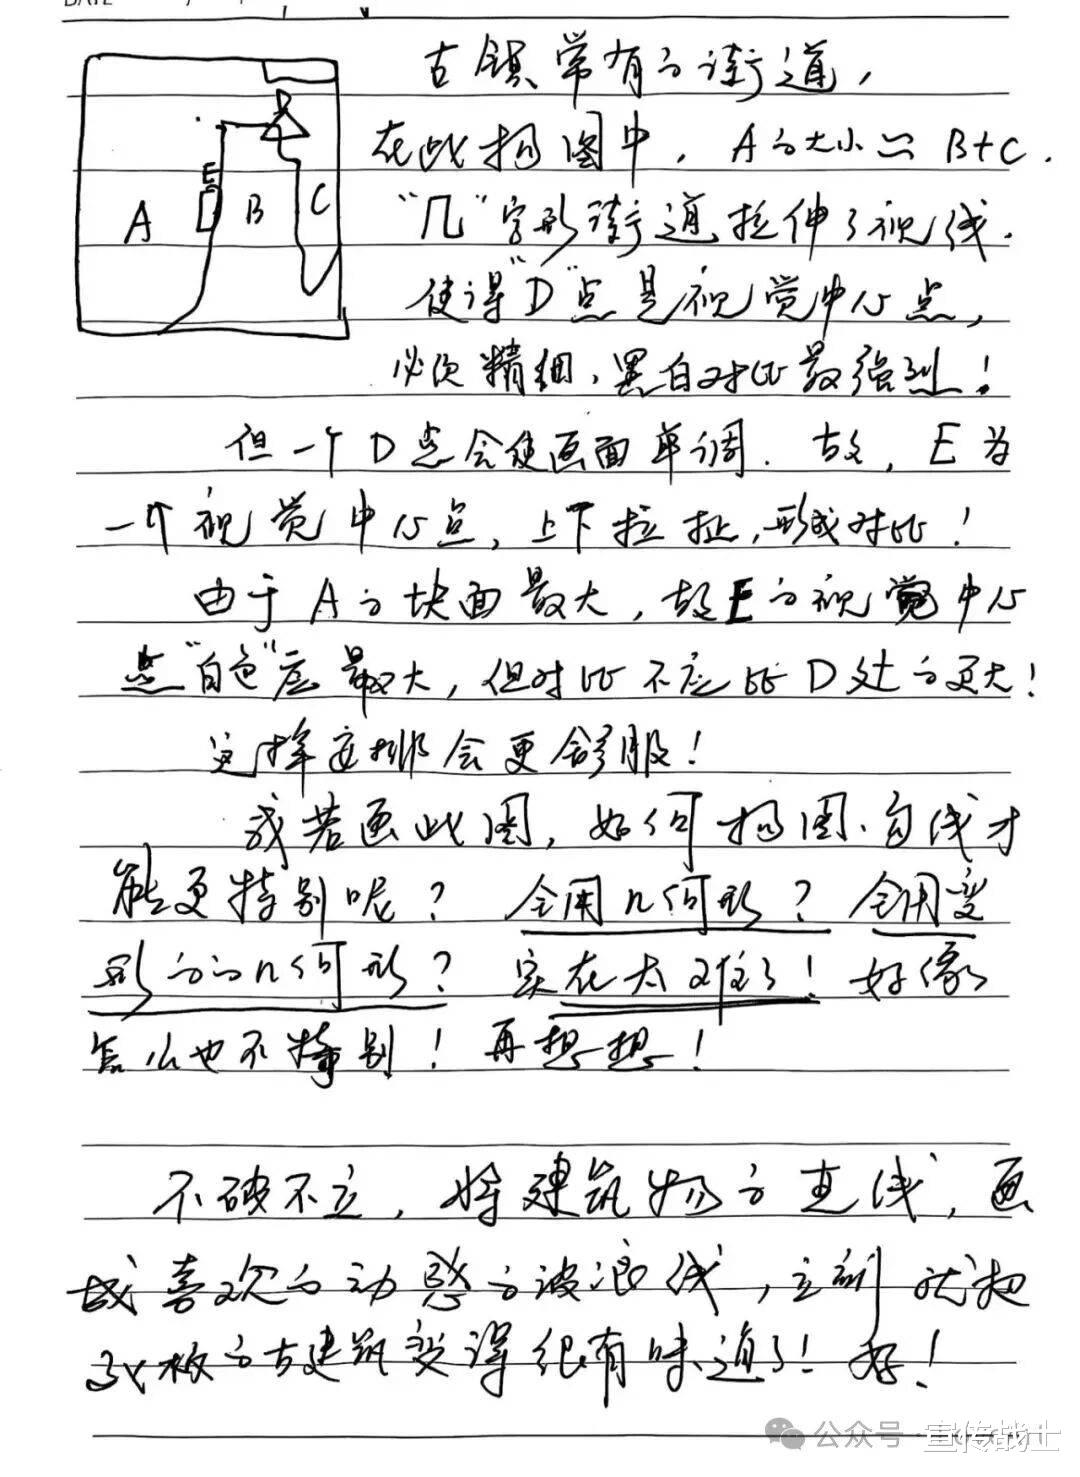 DATE
古镇常有的街道，
在此构图中，A的大小≈B+C.
"几"字形街道拉伸了视线.
使得"D"点是视觉中心点，
必须精细，黑白对比最强烈！
但一个D点会使画面单调.故，E为
一个视觉中心点，上下拉扯，形成对比！
由于A的块面最大，故E的视觉中心
点"白色"应最大，但对比不应比D处的更大！
这样安排会更舒服！
我若画此图，如何构图、勾线才
能更特别呢？会用几何形？会用变
形的的几何形？实在太难了！好像
怎么也不特别！再想想！
不破不立，将建筑物的直线，画
成喜欢的动感的波浪线，立刻就把
死板的古建筑变得很有味道了！好！
A
E
B
C
D
公众号·宣传战士